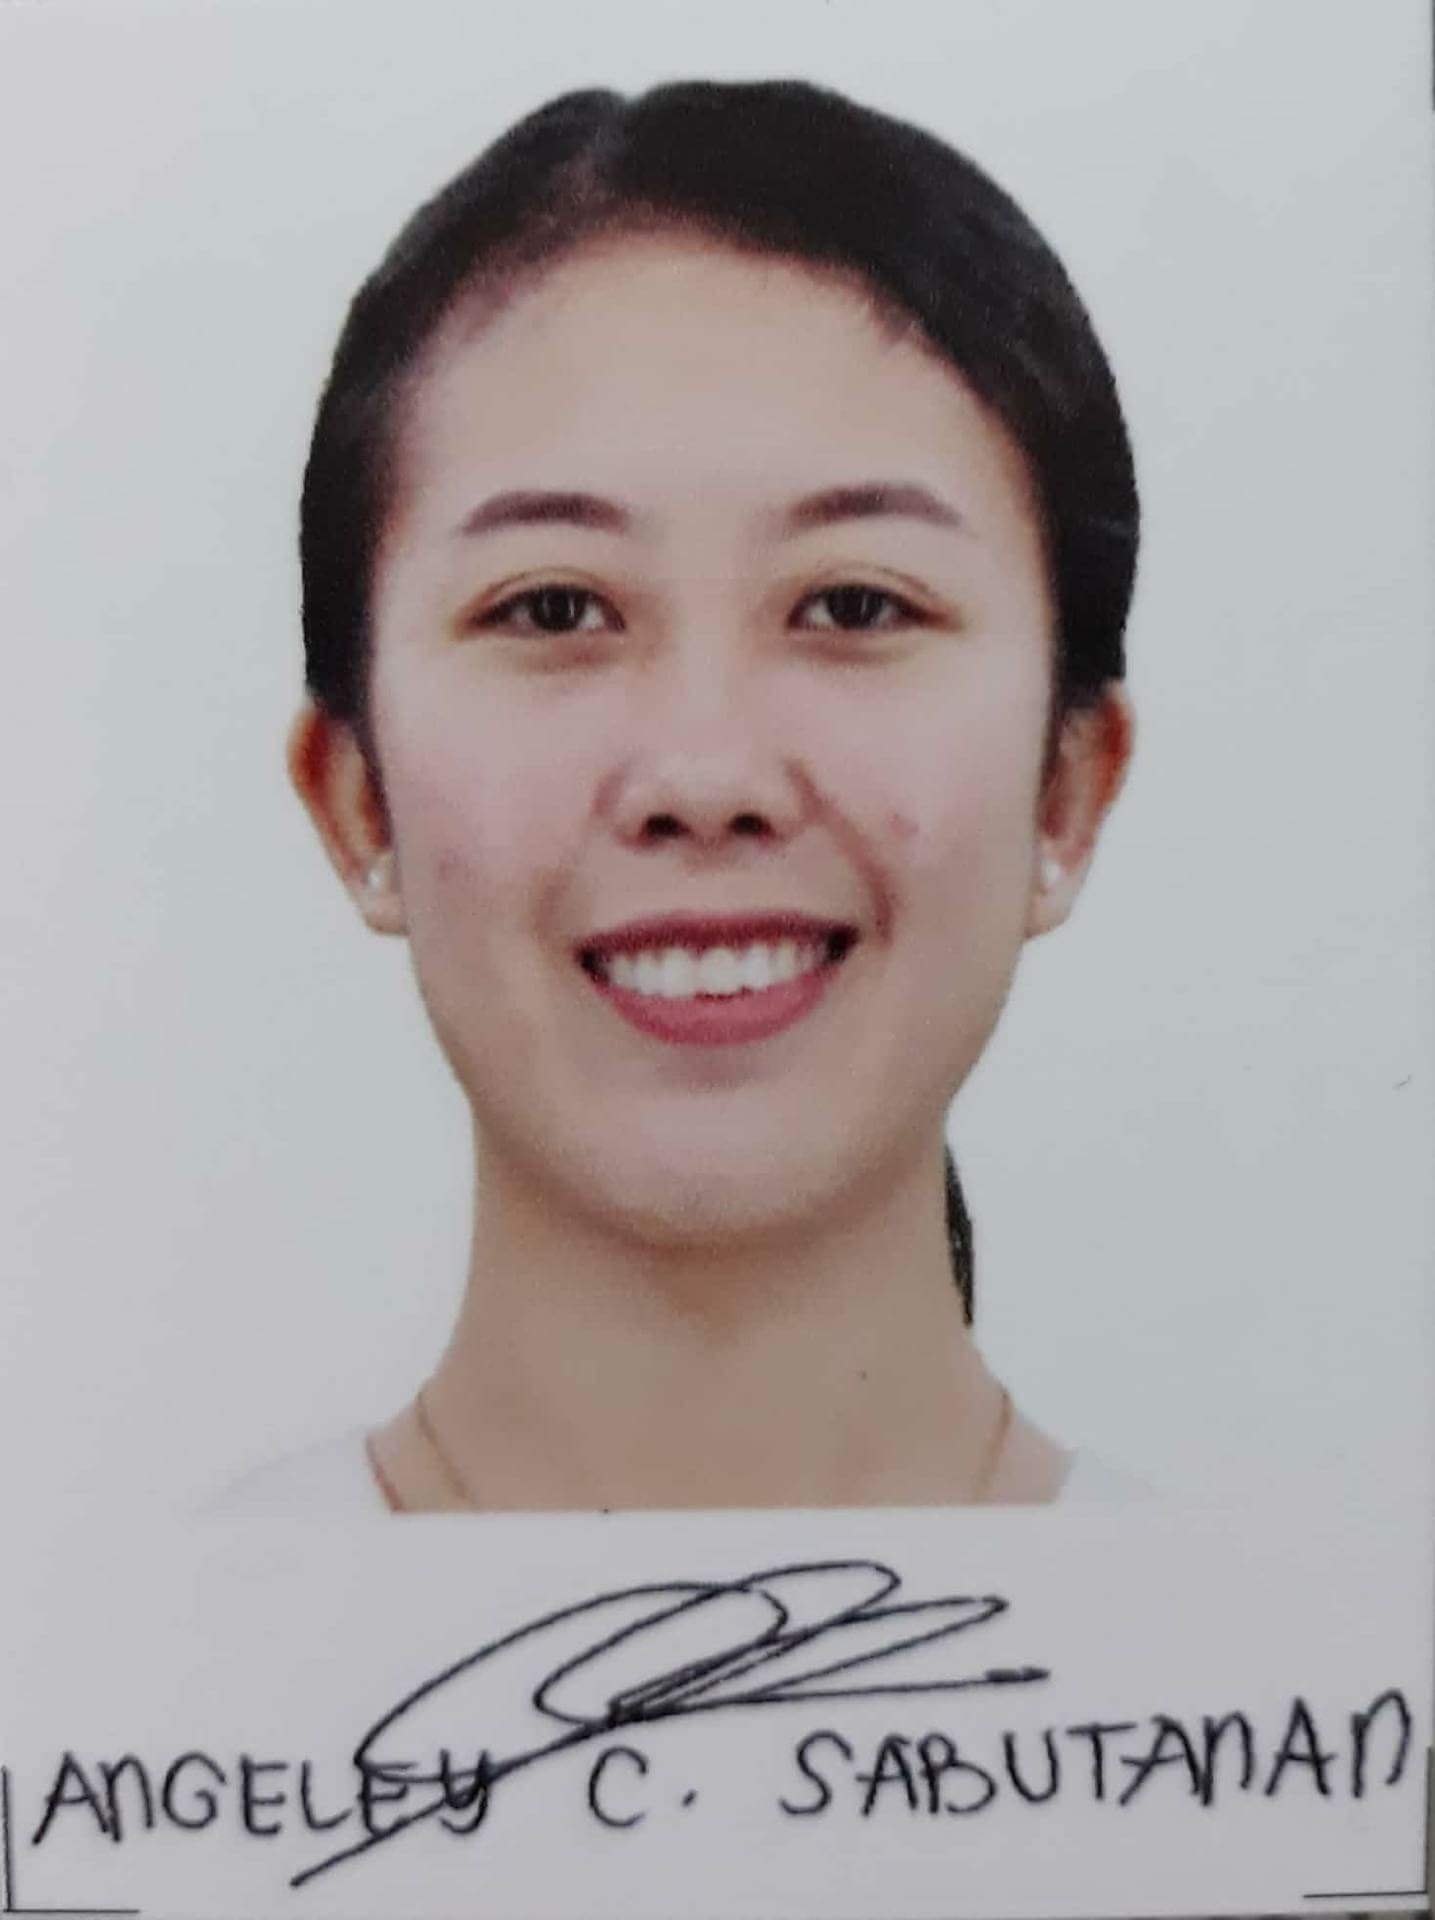 ANGELEY C. SABUTANAN